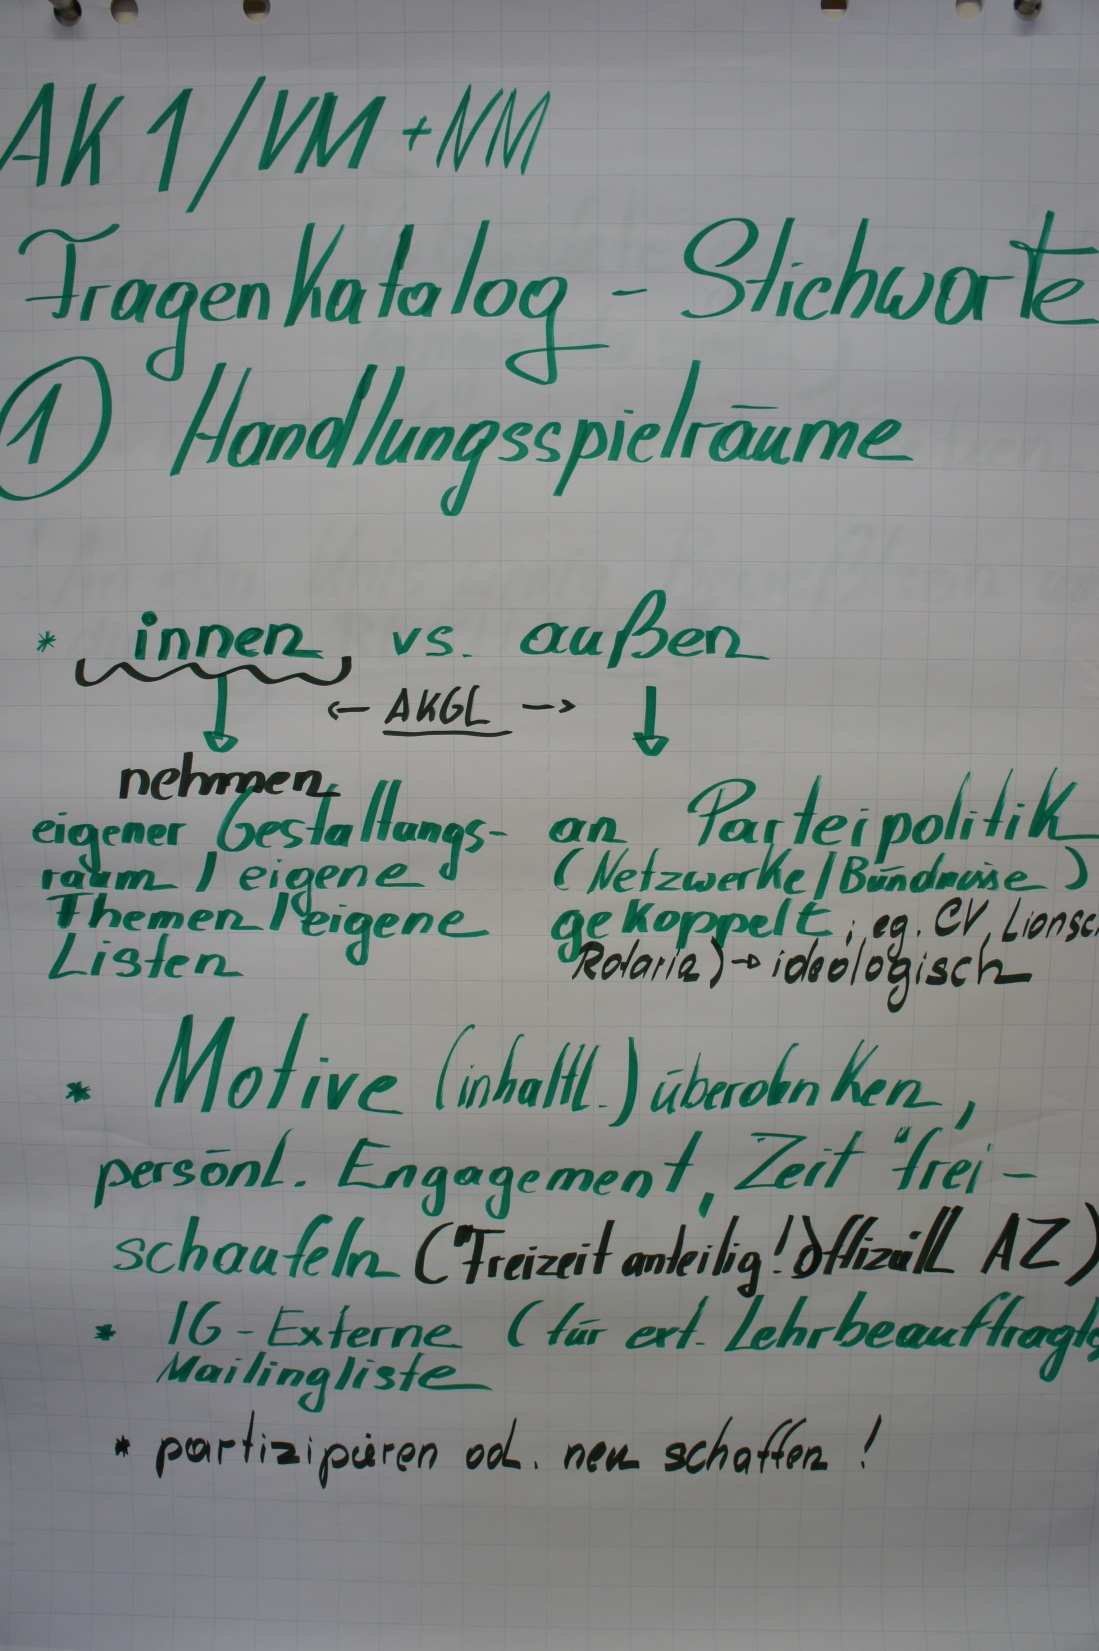 AK 1/VM + NM
Fragenkatalog - Stichworte
① Handlungsspielräume
* innen vs. außen
← AKGL →
nehmen
eigener Gestaltungs-
raum / eigene
Themen / eigene
Listen
an Parteipolitik
(Netzwerke / Bündnisse)
gekoppelt; eg. CV, Lionsc
Rotaria) → ideologisch
* Motive (inhaltl.) überdenken,
persönl. Engagement, Zeit "frei-
schaufeln ("Freizeit anteilig! Offiziell AZ)
* IG-Externe (für ext. Lehrbeauftragte
Mailingliste
* partizipieren od. neu schaffen!